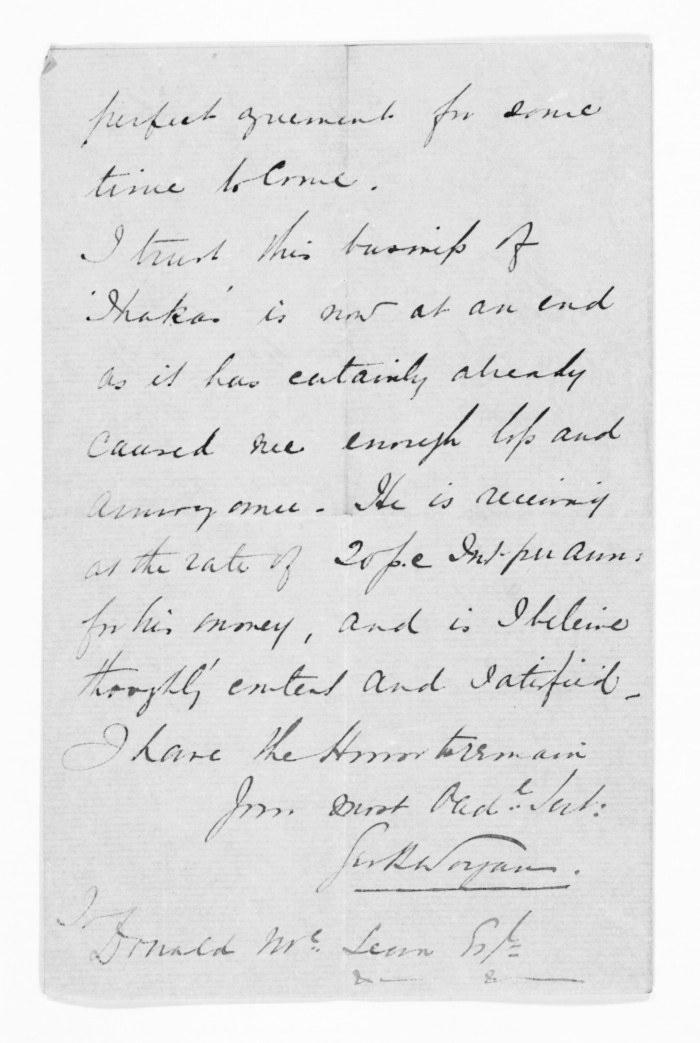 perfect agreement for some
time to Come.
I trust this business of
'Ihakas' is now at an end
as it has certainly already
caused me enough loss and
annoyance. He is receiving
at the rate of 20 p.c Int. per ann:
for his money, and is I beleive
thoughly content and Satisfied_
I have the Honor to remain
Your most Obedt. Sert:
Geo H Worgan.
To
Donald Mc. Lean Esqe
&c &c